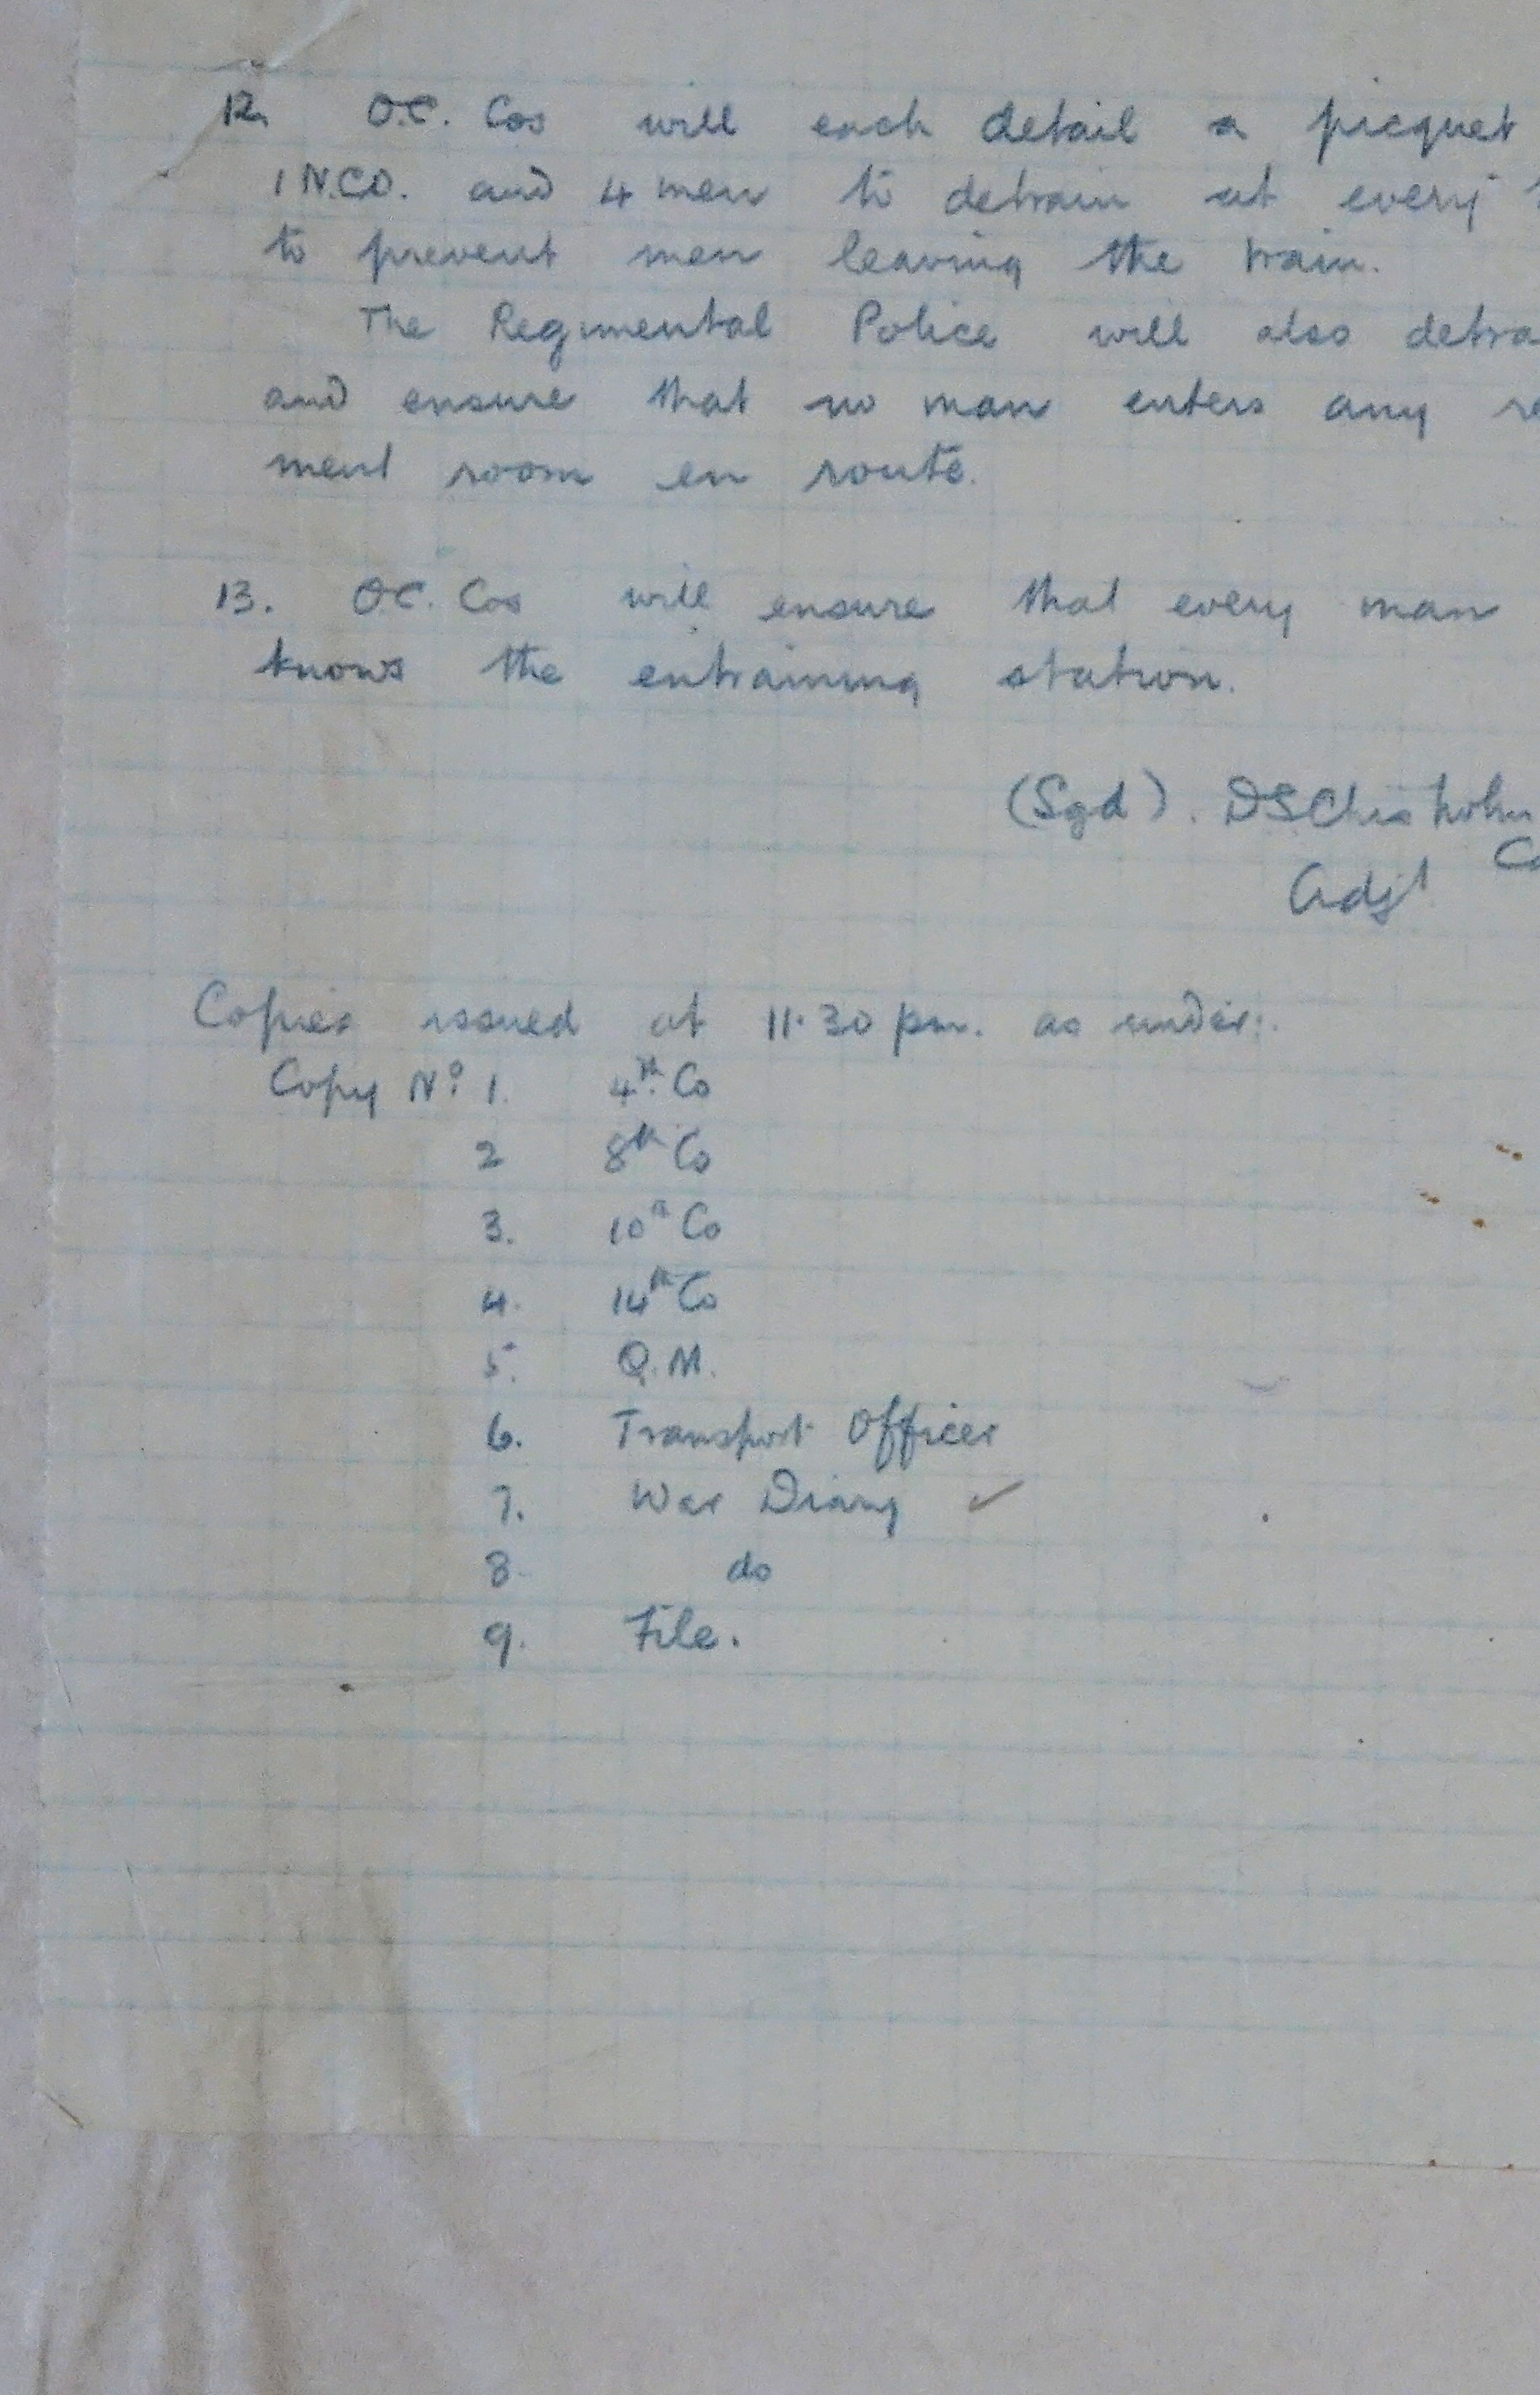 12. O.C. Cos will each detail a picquet
1 N.C.O. and 4 men to detrain at every
to prevent men leaving the train.
The Regimental Police will also detra
and ensure that no man enters any re
ment room en route.
13. O.C. Cos will ensure that every man
knows the entraining station.
(Sgd). D S Chisholm
Adjt
Copies issued at 11.30 pm. as under:.
Copy No. 1. 4th Co
2 8th Co
3. 10th Co
4. 14th Co
5. Q.M.
6. Transport Officer
7. War Diary ✓
8. do
9. File.